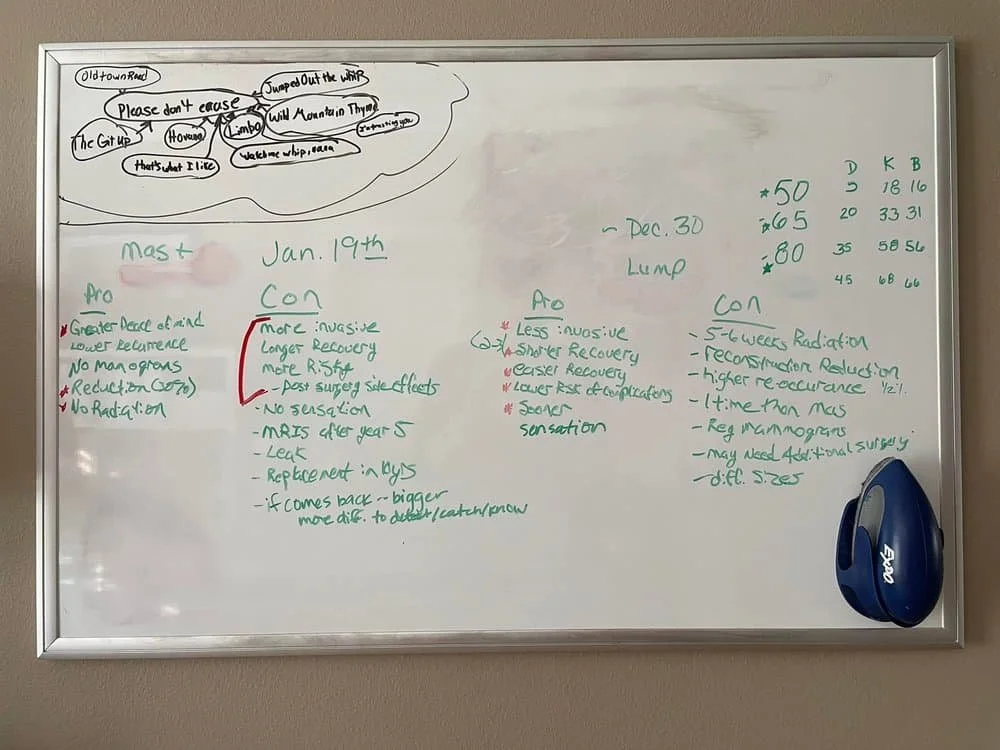 Old town Road
Please don't erase
Jumped Out the whip
Wild Mountain Thyme
I'm trusting you
The Git Up
Havana
Limbo
Watch me whip, nana
that's what I like
D K B
*50 5 18 16
65 20 33 31
80 35 58 56
45 68 66
Mast
Jan. 19th
Pro
Greater Peace of mind
Lower Recurrence
No manograms
*Reduction (30%)
No Radiation
Con
more invasive
Longer Recovery
more Risky
- Post surgery side effects
- No sensation
- MRIS after year 5
- Leak
- Replacement in 10yrs
- if comes back -- bigger
more diff. to detect/catch/know
~ Dec. 30
Lump
Pro
* Less invasive
(2-3) * Shorter Recovery
* easier Recovery
* Lower Risk of complications
* Sooner
sensation
Con
- 5-6 weeks Radiation
- reconstruction Reduction
- higher re-occurance 1/2%
- 1 time than mas
- Reg mammograms
- may Need Additional surgery
- diff. Sizes
EXPO